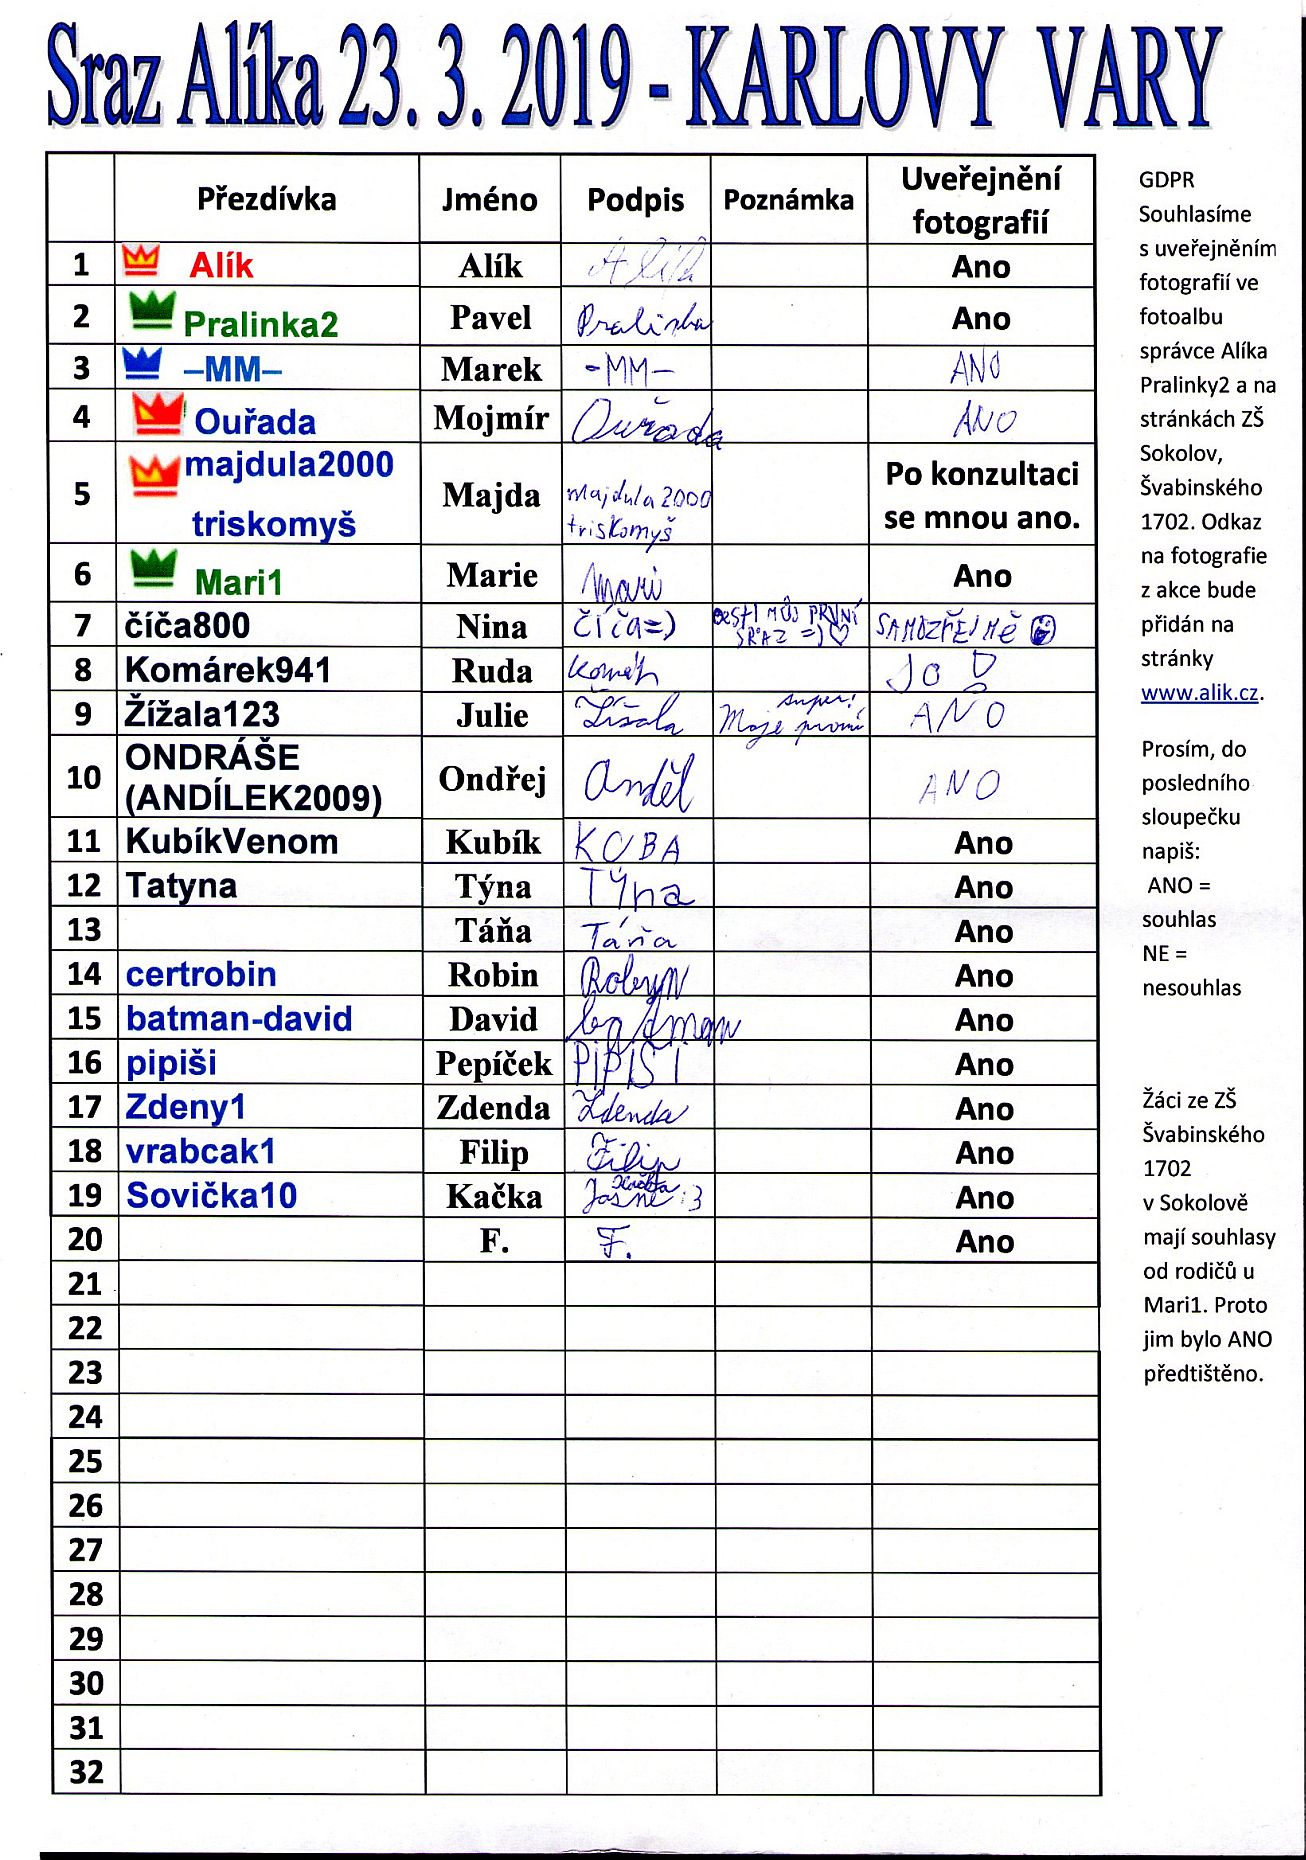 Sraz Alíka 23. 3. 2019 - KARLOVY VARY
Přezdívka Jméno Podpis Poznámka Uveřejnění fotografií
1 Alík Alík Alík Ano
2 Pralinka2 Pavel Pralinka Ano
3 –MM– Marek -MM- ANO
4 Ouřada Mojmír Ouřada ANO
5 majdula2000 triskomyš Majda majdula2000 triskomyš Po konzultaci se mnou ano.
6 Mari1 Marie Mari Ano
7 číča800 Nina číča=) MŮJ PRVNÍ SRAZ =)♡ SAMOZŘEJMĚ
8 Komárek941 Ruda JO
9 Žížala123 Julie Žížala super! Moje první ANO
10 ONDRÁŠE (ANDÍLEK2009) Ondřej Anděl ANO
11 KubíkVenom Kubík KUBA Ano
12 Tatyna Týna Týna Ano
13 Táňa Táňa Ano
14 certrobin Robin Ano
15 batman-david David Ano
16 pipiši Pepíček PIPIŠI Ano
17 Zdeny1 Zdenda Zdenda Ano
18 vrabcak1 Filip Filip Ano
19 Sovička10 Kačka Jasně :3 Ano
20 F. F. Ano
21
22
23
24
25
26
27
28
29
30
31
32
GDPR
Souhlasíme
s uveřejněním
fotografií ve
fotoalbu
správce Alíka
Pralinky2 a na
stránkách ZŠ
Sokolov,
Švabinského
1702. Odkaz
na fotografie
z akce bude
přidán na
stránky
www.alik.cz.
Prosím, do
posledního
sloupečku
napiš:
ANO =
souhlas
NE =
nesouhlas
Žáci ze ZŠ
Švabinského
1702
v Sokolově
mají souhlasy
od rodičů u
Mari1. Proto
jim bylo ANO
předtištěno.